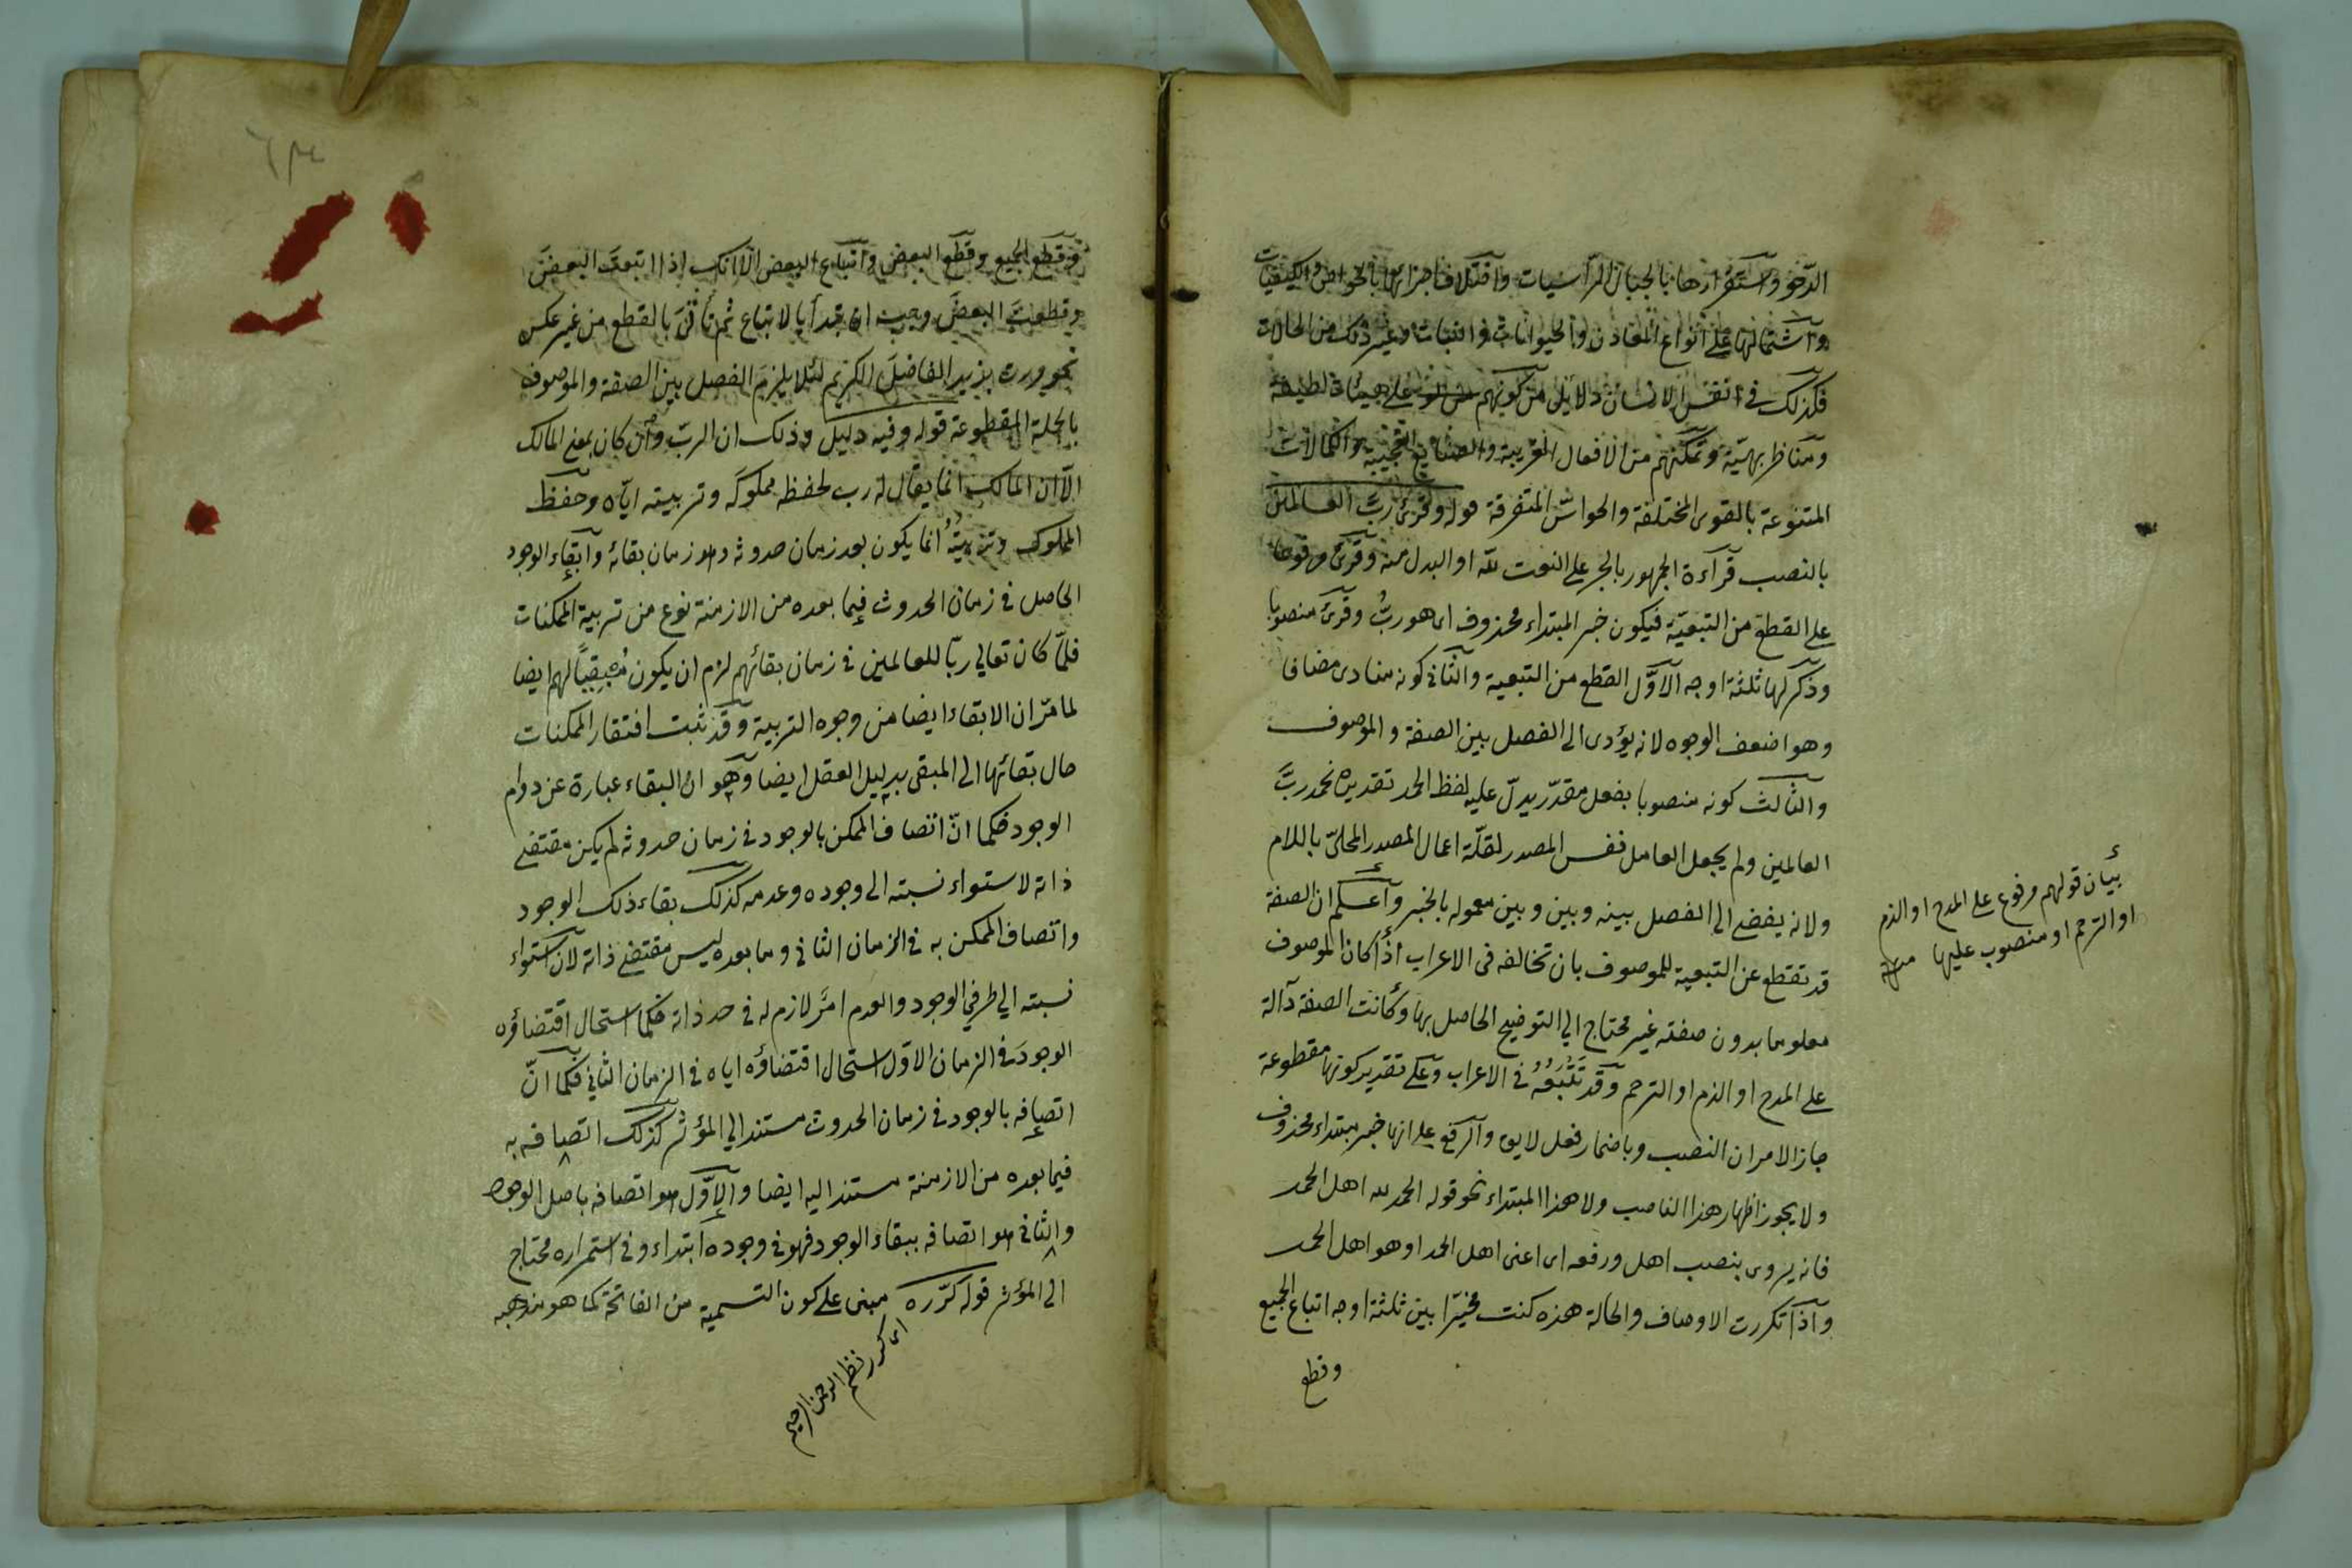 الدحو واستقرارها بالجبال الراسيات واختلاف اجزائها فى الخواص والكيفيات
واشتمالها على انواع المعادن والحيوانات والنبات وغير ذلك من الحالات
فكذلك فى انفس الانسان دلايل من كونهم على هيئات لطيفة
ومناظر بهيّة وتمكنهم من الافعال الغريبة والصنايع العجيبة والكمالات
المتنوعة بالقوى المختلفة والحواسّ المتفرقة قوله وقرئ ربّ العالمين
بالنصب قرآءة الجمهور بالجر على النعت لله او البدل منه وقرئ مرفوعا
على القطع من التبعيّة فيكون خبر المبتداء محذوف اى هو ربُّ وقرئ منصوبا
وذكر لها ثلثة اوجه الاوّل القطع من التبعية والثانى كونه منادى مضافا
وهو اضعف الوجوه لانه يؤدى الى الفصل بين الصفة والموصوف
والثالث كونه منصوبا بفعل مقدّر يدلّ عليه لفظ الحمد تقديره نحمد ربَّ
العالمين ولم يجعل العامل نفس المصدر لقلّة اعمال المصدر المحلّى باللام
ولانه يفضى الى الفصل بينه وبين وبين معموله بالخبر وآعلم ان الصفة
قد تقطع عن التبعية للموصوف بان تخالفه فى الاعراب اذا كان الموصوف
معلوما بدون صفته غير محتاج الى التوضيح الحاصل بها وكانت الصفة دآلة
على المدح او الذم او الترحم وقد تَتْبَعُهُ فى الاعراب وعلى تقدير كونها مقطوعة
جاز الامران النصب وباضمار فعل لايق والرفع على انها خبر مبتداء محذوف
ولا يجوز اظهار هذا الناصب ولا هذا المبتداء نحو قوله الحمد لله اهل الحمد
فانه يروى بنصب اهل ورفعه اى اعنى اهل الحمد او هو اهل الحمد
وآذا تكررت الاوصاف والحالة هذه كنت مخيّرا بين ثلثة اوجه اتباع الجميع
وقطع
بيان قولهم مرفوع على المدح او الذم
او الترحم او منصوب عليها
وقطع الجميع وقطع البعض واتباع البعض الّا انك اذا اتبعت البعضَ
وقطعت البعضَ وجب ان تبدأ بالاتباع ثم تأتى بالقطع من غير عكس
نحو مررت بزيد الفاضلَ الكريم لئلا يلزم الفصل بين الصفة والموصوف
بالجملة المقطوعة قوله وفيه دليل وذلك ان الربّ وان كان بمعنى المالك
الّا ان المالك انما يقال له رب لحفظه مملوكَه وتربيته ايّاه وحفظ
المملوك وتربيتُهُ انما يكون بعد زمان حدوثه وهو زمان بقائه وابقاء الوجود
الحاصل فى زمان الحدوث فيما بعده من الازمنة نوع من تربية الممكنات
فلمّا كان تعالى ربّا للعالمين فى زمان بقائهم لزم ان يكون مُبقيًا لهم ايضا
لما مرّ ان الابقاء ايضا من وجوه التربية وقد ثبت افتقار الممكنات
حال بقائها الى المبقى بدليل العقل ايضا وهو ان البقاء عبارة عن دوام
الوجود فكما انّ اتصاف الممكن بالوجود فى زمان حدوثه لم يكن مقتضى
ذاته لاستواء نسبته الى وجوده وعدمه كذلك بقاء ذلك الوجود
واتصاف الممكن به فى الزمان الثانى وما بعده ليس مقتضى ذاته لان استواء
نسبته الى طرفى الوجود والعدم امرٌ لازم له فى حد ذاته فكما استحال اقتضاؤه
الوجودَ فى الزمان الاوّل استحال اقتضاؤه اياه فى الزمان الثانى فكما انّ
اتصافه بالوجود فى زمان الحدوث مستند الى المؤثر كذلك اتصافه به
فيما بعده من الازمنة مستند اليه ايضا والاوّل هو اتصافه باصل الوجود
والثانى هو اتصافه ببقاء الوجود فهو فى وجوده ابتداء وفى استمراره محتاج
الى المؤثر قوله كرّره مبنى على كون التسمية من الفاتحة كما هو مذهبه
اى كرر نظم الرحمن الرحيم